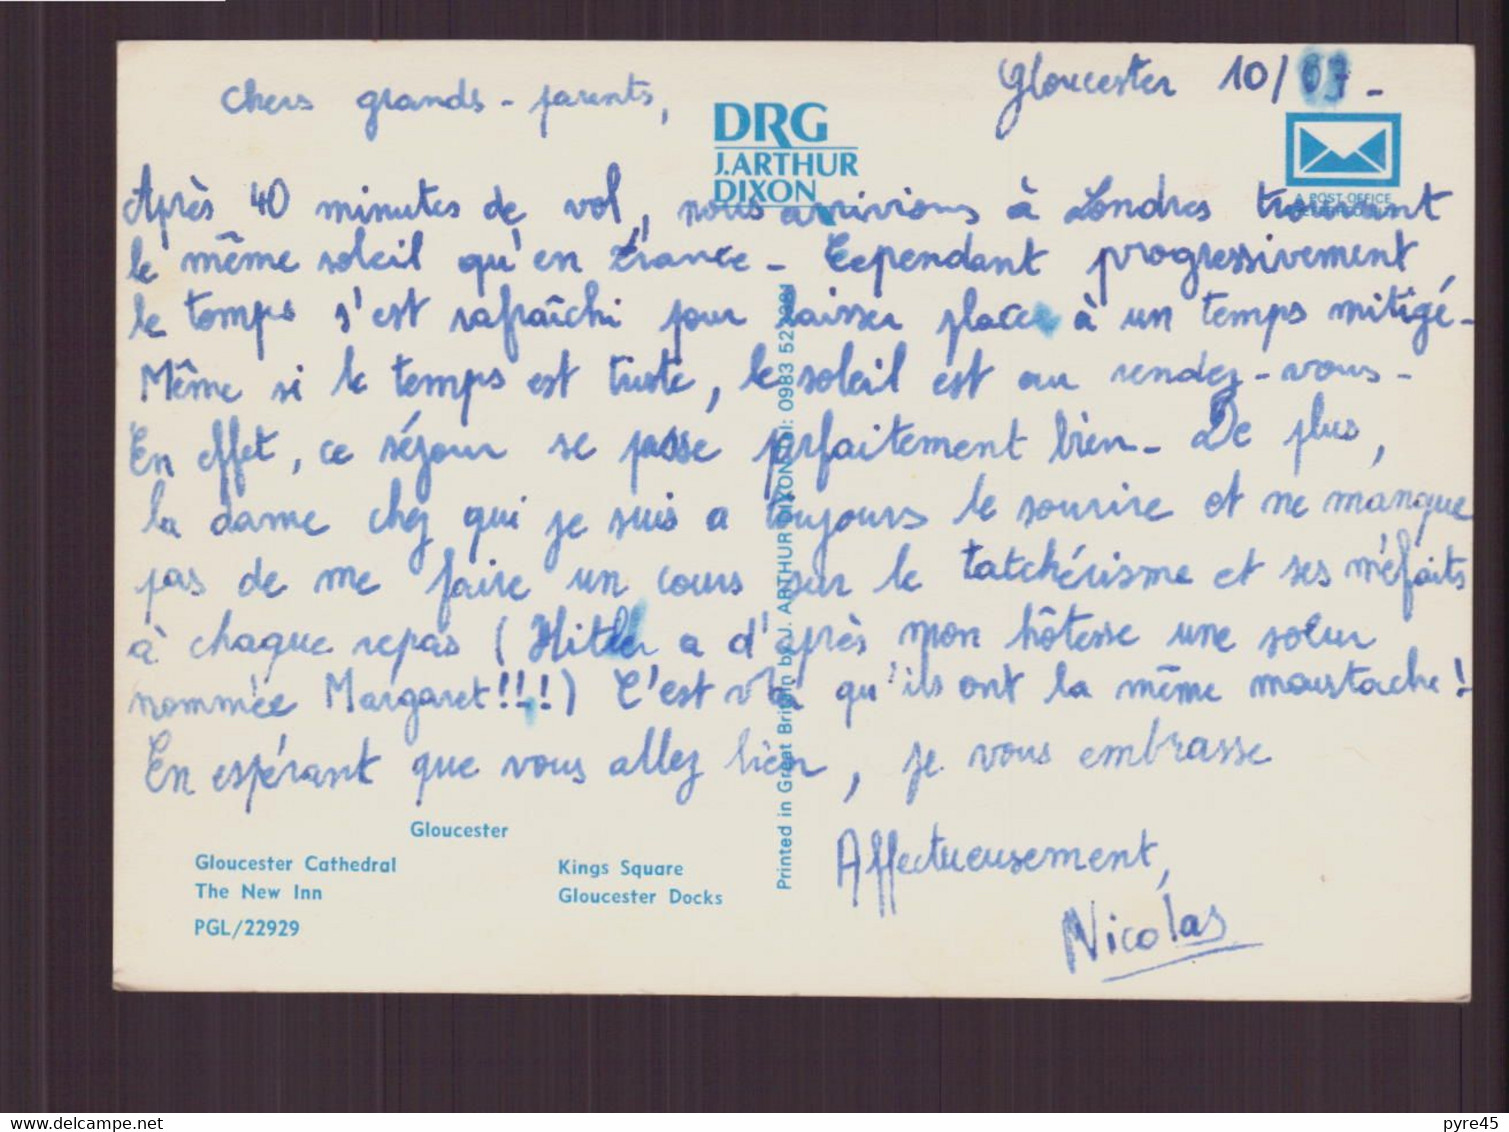 Gloucester 10/07-
Chers grands-parents,
DRG
J.ARTHUR
DIXON
POST OFFICE
Après 40 minutes de vol, nous arrivions à Londres trouvant
le même soleil qu'en France - Cependant progressivement
le temps s'est rafraîchi pour laisser place à un temps mitigé -
Même si le temps est triste, le soleil est au rendez-vous -
En effet, ce séjour se passe parfaitement bien - De plus,
la dame chez qui je suis a toujours le sourire et ne manque
pas de me faire un cours sur le tatchérisme et ses méfaits
à chaque repas (Hitler a d'après mon hôtesse une soeur
nommée Margaret!!!!) C'est vrai qu'ils ont la même moustache!
En espérant que vous allez bien, je vous embrasse
Affectueusement,
Nicolas
Printed in Great Britain by J. ARTHUR DIXON Tel: 0983 523381
Gloucester
Gloucester Cathedral
The New Inn
PGL/22929
Kings Square
Gloucester Docks
delcampe.net
pyre45